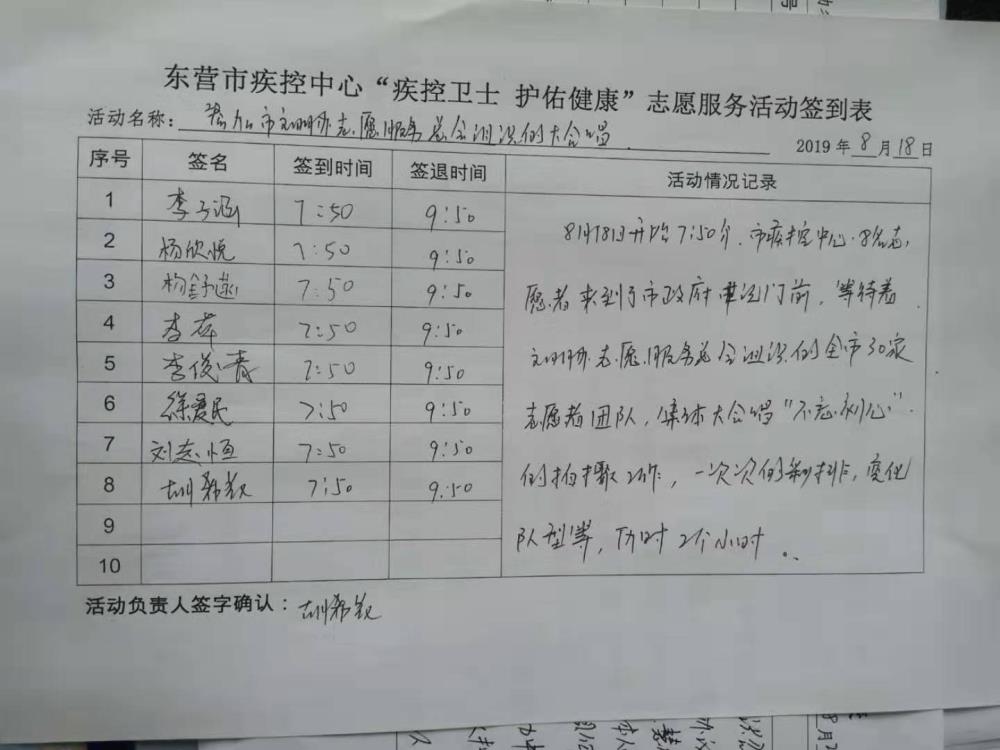 东营市疾控中心“疾控卫士 护佑健康”志愿服务活动签到表
活动名称: 参加市文明办志愿服务总会组织的大合唱
2019年8月18日
序号 签名 签到时间 签退时间 活动情况记录
1 李子涵 7:50 9:50
2 杨欣悦 7:50 9:50
3 杨舒 7:50 9:50
4 李萍 7:50 9:50
5 李俊青 7:50 9:50
6 徐爱民 7:50 9:50
7 刘志恒 7:50 9:50
8 7:50 9:50
9
10
8月18日开始7:50分,市疾控中心8名志
愿者来到了市政府门前,等待着
文明办志愿服务总会组织的全市30家
志愿者团队,集体大合唱“不忘初心”
的拍摄工作,一次次的彩排,变化
队型等,历时2个小时.
活动负责人签字确认: